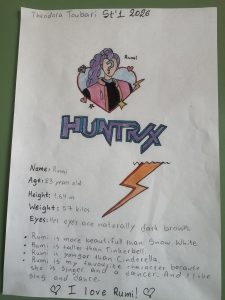 Theodora Toubari St'1 2026
Rumi
HUNTRX
Name: Rumi
Age: 23 year old
Height: 1.64 m
Weight: 57 kilos
Eyes: Her eyes are naturally dark brown.
• Rumi is more beautiful than Snow White.
• Rumi is taller than Tinkerbell.
• Rumi is yonger than Cinderella.
• Rumi is my favourite character because
she is singer and a dancer. And I like
sing and dance.
♡ I love Rumi! ♡